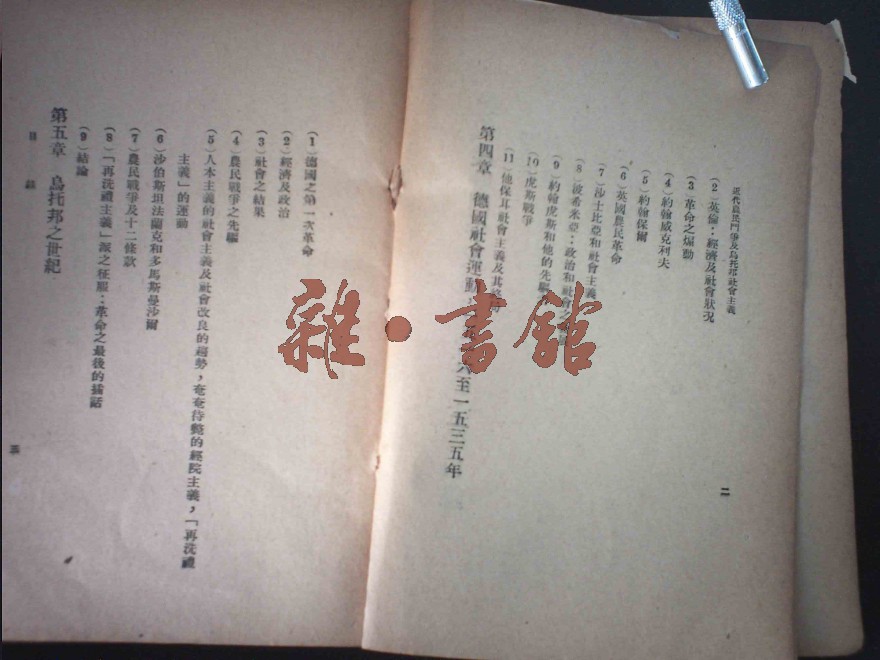 近代農民鬥爭及烏托邦社會主義
二
(2)英倫：經濟及社會狀况
(3)革命之煽動
(4)約翰威克利夫
(5)約翰保爾
(6)英國農民革命
(7)沙士比亞和社會主義
(8)波希米亞：政治和社會之
(9)約翰虎斯和他的先驅
(10)虎斯戰爭
(11)他保耳社會主義及其
第四章　德國社會運動
六至一五三五年
(1)德國之第一次革命
(2)經濟及政治
(3)社會之結果
(4)農民戰爭之先驅
(5)人本主義的社會主義及社會改良的趨勢，奄奄待斃的經院主義，「再洗禮
主義」的運動
(6)沙伯斯坦法蘭克和多馬斯曼沙爾
(7)農民戰爭及十二條款
(8)「再洗禮主義」派之征服：革命之最後的插話
(9)結論
第五章　烏托邦之世紀
目　錄
三
雜·書館